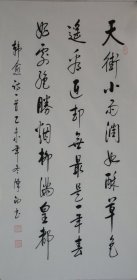 天街小雨潤如酥草色
遥看近却無最是一年春
好處絶勝烟柳滿皇都
韓愈詩一首乙未年冬